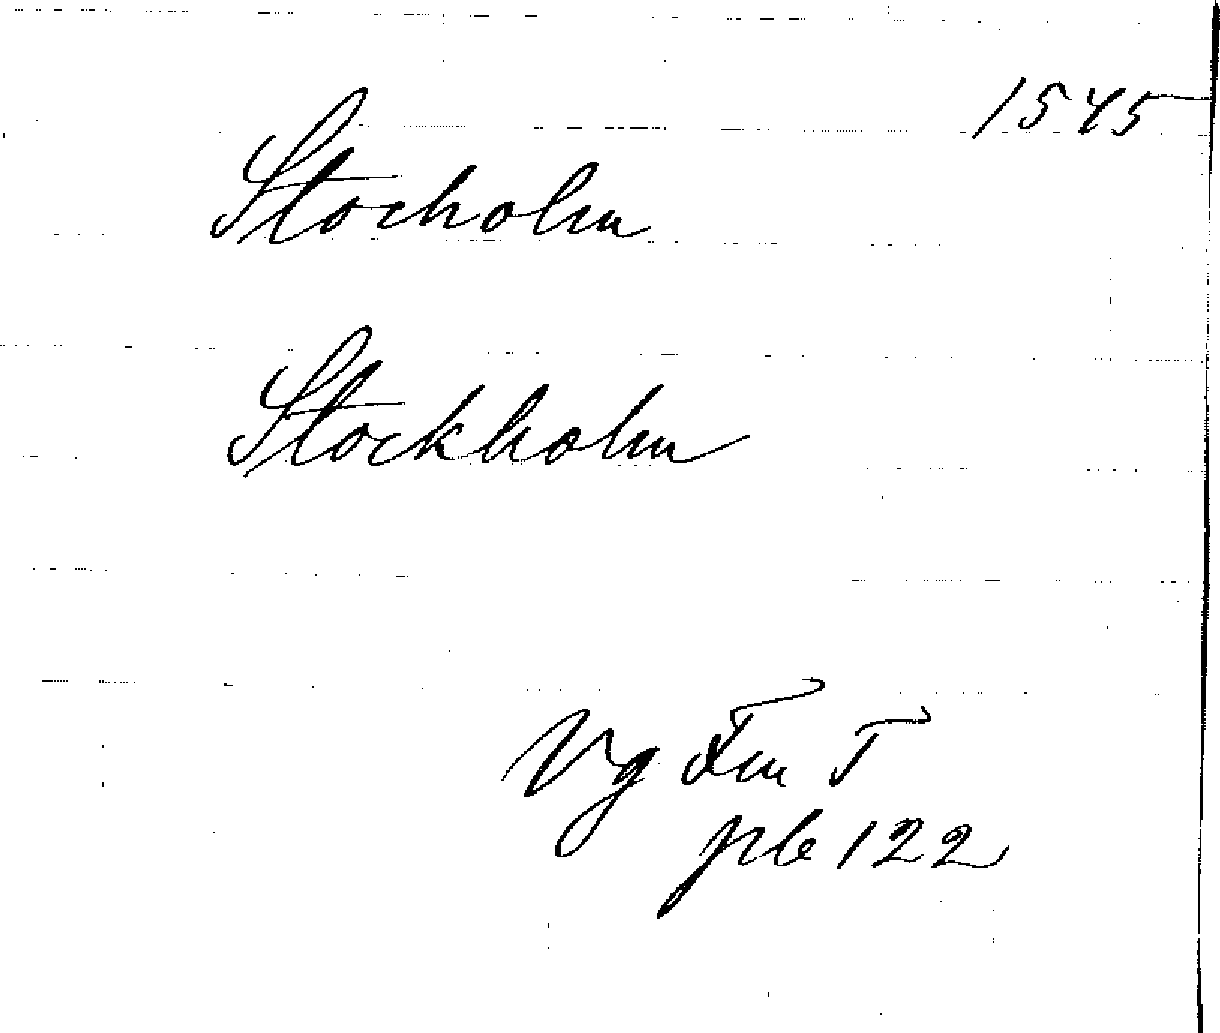 1545
Stocholm
Stockholm
Vg Fru T
ple 122